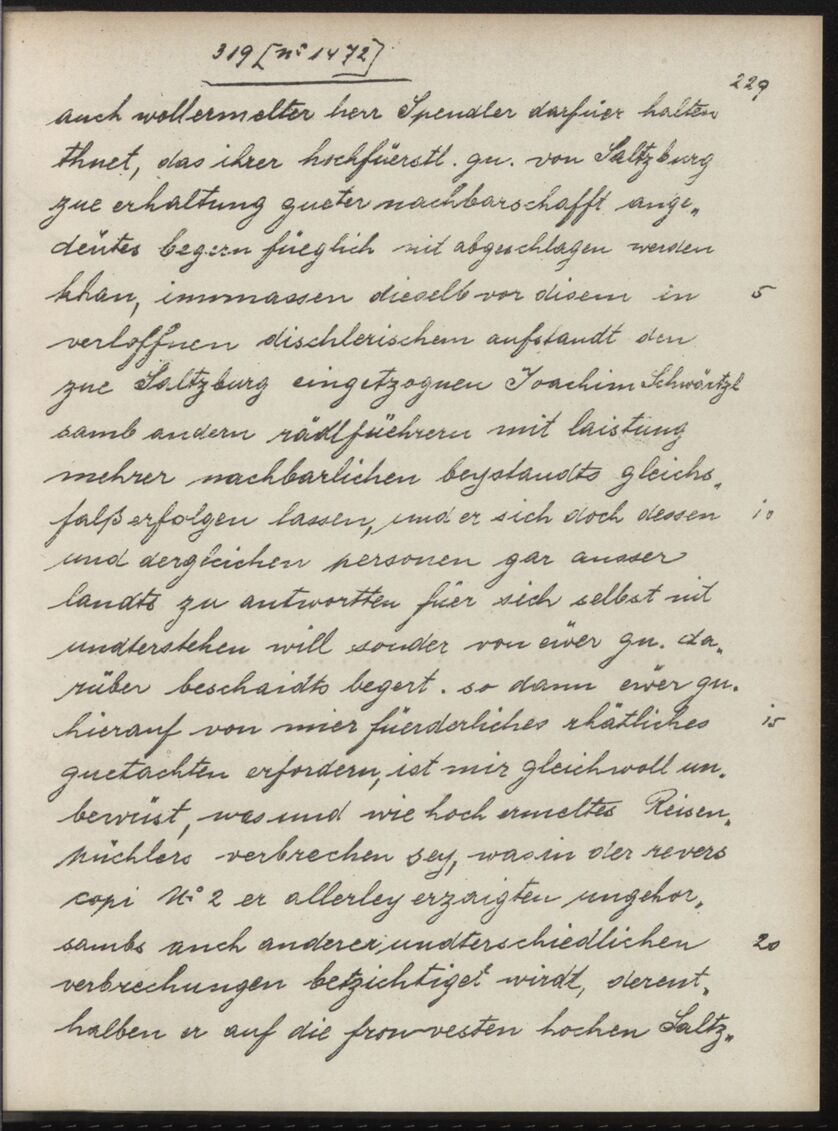 319 [No 1472]
229
auch wollermelter herr Spendler darfuer halten
thuet, das ihrer hochfüerstl. gn. von Saltzburg
zue erhaltung gueter nachbarschafft ange„
deütes begern füeglich nit abgeschlagen werden
khan, immassen dieselb vor disem in 5
verloffnen dischlerischem aufstandt den
zue Saltzburg eingetzognen Joachim Schwärtzl
samb andern rädlfüehrern mit laistung
mehrer nachbarlichen beystandts gleichs„
falß erfolgen lassen, und er sich doch dessen 10
und dergleichen personen gar ausser
landts zu antwortten füer sich selbst nit
undterstehen will sonder von eüer gn. da„
rüber beschaidts begert. so dann ewer gn.
hierauf von mier füerderliches rhätliches 15
guetachten erfordern, ist mir gleichwoll un„
bewüst, was und wie hoch ermeltes Reisen„
püchlers verbrechen sey, was in der revers
copi No 2 er allerley erzaigten ungehor„
sambs auch anderer undterschiedlichen 20
verbrechungen betzichtiget wirdt, derent„
halben er auf die fron vesten hochen Saltz„